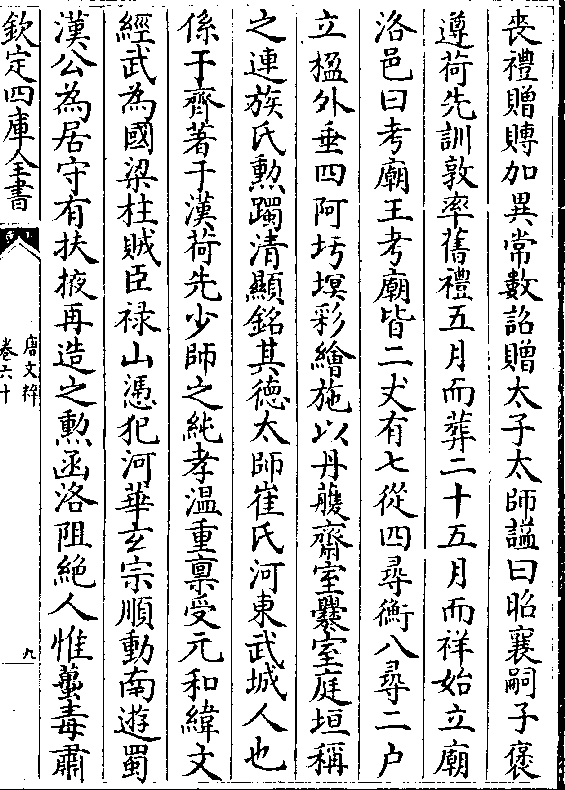 喪禮贈賻加異常數詔贈太子太師諡曰昭襄嗣子褒
遵荷先訓敦率舊禮五月而葬二十五月而祥始立廟
洛邑曰考廟王考廟皆二丈有七從四尋衡八尋二户
立楹外垂四阿圬塓彩繪施以丹雘齋室爨室庭垣稱
之連族氏勲躅清顯銘其德太師崔氏河東武城人也
係于齊著于漢荷先少師之純孝温重禀受元和緯文
經武為國梁柱賊臣禄山憑犯河華玄宗順動南遊蜀
漢公為居守有扶掖再造之勲函洛阻絶人惟蠆毒肅
欽定四庫全書
唐文粹
卷六十
九